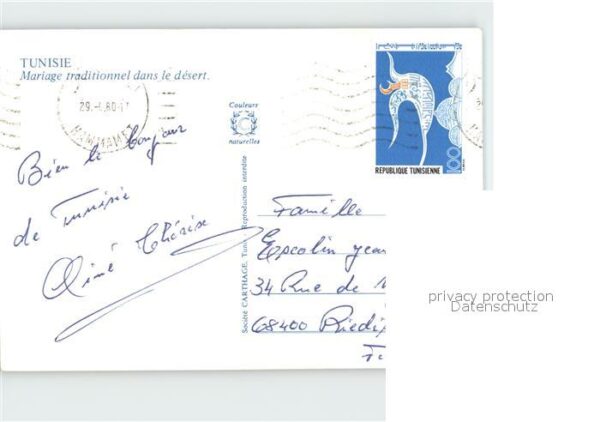 TUNISIE
Mariage traditionnel dans le désert.
29.-1.80-17
HAMMAMET
Couleurs
naturelles
REPUBLIQUE TUNISIENNE
100
Bien le bonjour
de Tunisie
Aimé Thérèse
Société CARTHAGE, Tunis Reproduction interdite
Famille
Escolin Jean
34 Rue de
68400 Riedi
privacy protection
Datenschutz